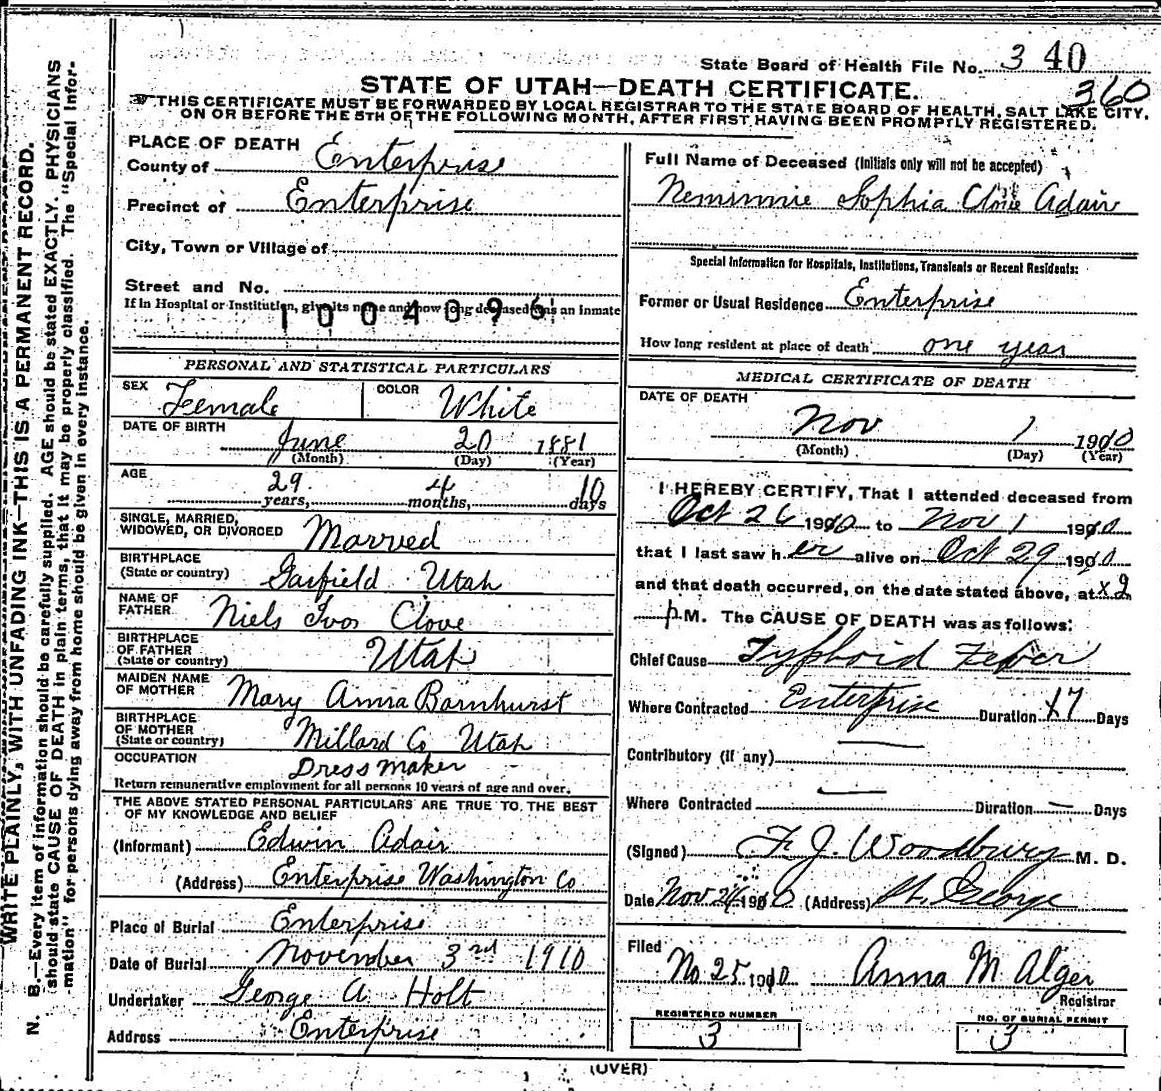 State Board of Health File No. 3 40
360
STATE OF UTAH—DEATH CERTIFICATE.
THIS CERTIFICATE MUST BE FORWARDED BY LOCAL REGISTRAR TO THE STATE BOARD OF HEALTH, SALT LAKE CITY,
ON OR BEFORE THE 5TH OF THE FOLLOWING MONTH, AFTER FIRST HAVING BEEN PROMPTLY REGISTERED.
WRITE PLAINLY, WITH UNFADING INK—THIS IS A PERMANENT RECORD.
N. B.—Every item of information should be carefully supplied. AGE should be stated EXACTLY. PHYSICIANS
should state CAUSE OF DEATH in plain terms, that it may be properly classified. The "Special Infor-
mation" for persons dying away from home should be given in every instance.
PLACE OF DEATH
County of Enterprise
Precinct of Enterprise
City, Town or Village of
Street and No.
If in Hospital or Institution, give its name and how long deceased was an Inmate
1004096
PERSONAL AND STATISTICAL PARTICULARS
SEX Female COLOR White
DATE OF BIRTH June 20 1881
(Month) (Day) (Year)
AGE 29 years, 4 months, 10 days
SINGLE, MARRIED, WIDOWED, OR DIVORCED Marred
BIRTHPLACE (State or country) Garfield Utah
NAME OF FATHER Niels Ivor Clove
BIRTHPLACE OF FATHER (State or country) Utah
MAIDEN NAME OF MOTHER Mary Anna Barnhurst
BIRTHPLACE OF MOTHER (State or country) Millard Co Utah
OCCUPATION Dress maker
Return remunerative employment for all persons 10 years of age and over.
THE ABOVE STATED PERSONAL PARTICULARS ARE TRUE TO THE BEST
OF MY KNOWLEDGE AND BELIEF
(Informant) Edwin Adair
(Address) Enterprise Washington Co
Place of Burial Enterprise
Date of Burial November 3rd 1910
Undertaker George A Holt
Address Enterprise
Full Name of Deceased (Initials only will not be accepted)
Neminnie Sophia Clove Adair
Special Information for Hospitals, Institutions, Transients or Recent Residents:
Former or Usual Residence Enterprise
How long resident at place of death one year
MEDICAL CERTIFICATE OF DEATH
DATE OF DEATH
Nov 1 1910
(Month) (Day) (Year)
I HEREBY CERTIFY, That I attended deceased from
Oct 26 1910 to Nov 1 1910
that I last saw her alive on Oct 29 1910
and that death occurred, on the date stated above, at x2
p M. The CAUSE OF DEATH was as follows:
Chief Cause Typhoid Fever
Where Contracted Enterprise Duration x7 Days
Contributory (if any) —
Where Contracted — Duration — Days
(Signed) F. J. Woodbury M. D.
Date Nov 26 1910 (Address) St. George
Filed No 25 1910 Anna M Alger
Registrar
REGISTERED NUMBER
3
NO. OF BURIAL PERMIT
3
(OVER)